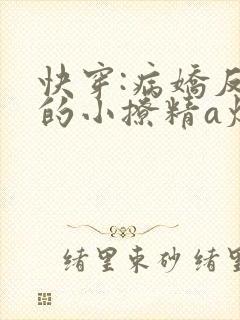 快穿:病嬌反
的小撩精a炸
绪里束砂 绪里